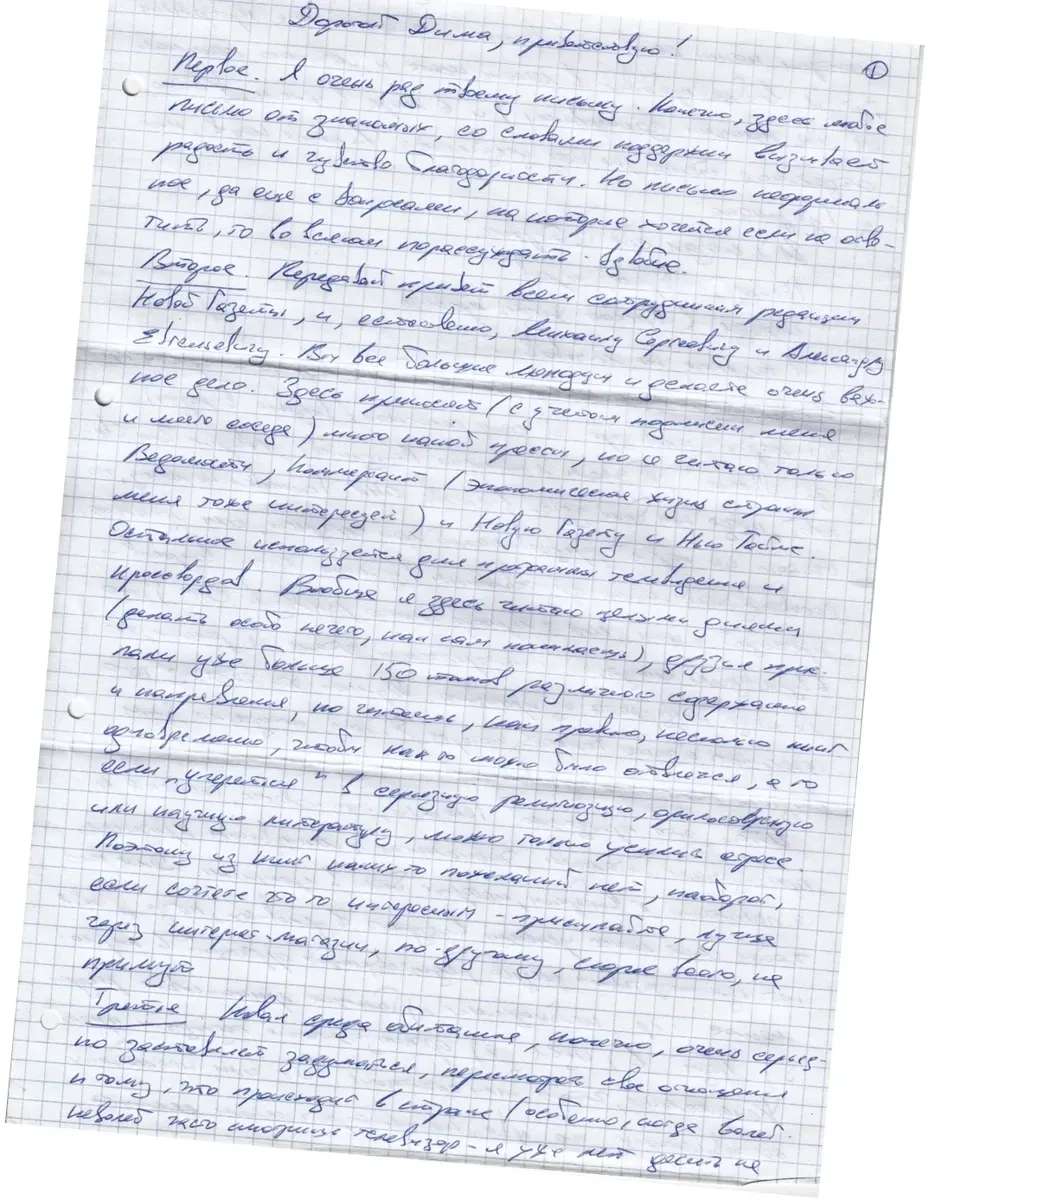 Дорогой Дима, приветствую!
①
Первое. Я очень рад твоему письму. Конечно, здесь любое
письмо от знакомых, со словами поддержки вызывает
радость и чувство благодарности. Но письмо неформаль
ное, да еще с вопросами, на которые хочется если не отве-
тить, то во всяком порассуждать - вдвойне.
Второе. Передавай привет всем сотрудникам редакции
Новой Газеты, и, естественно, Михаилу Сергеевичу и Александру
Евгеньевичу. Вы все большие молодцы и делаете очень важ-
ное дело. Здесь приносят (с учетом подписки меня
и моего соседа) много какой прессы, но я читаю только
Ведомости, Коммерсант (экономическая жизнь страны
меня тоже интересует) и Новую Газету и Нью Таймс.
Остальное используется для программ телевидения и
кроссвордов. Вообще я здесь читаю целыми днями
(делать особо нечего, как сам понимаешь), друзья прис
лали уже больше 150 томов различного содержания
и направления, но читаешь, как правило, несколько книг
одновременно, чтобы как то можно было отвлечся, а то
если "упереться" в серьезную религиозную, философскую
или научную литературу, можно только усилить стресс.
Поэтому из книг каких то пожеланий нет, наоборот,
если сочтете что то интересным - присылайте, лучше
через интернет-магазин, по-другому, скорее всего, не
примут
Третье Новая среда обитания, конечно, очень серьез-
но заставляет задуматься, пересмотреть свое отношение
к тому, что происходит в стране (особенно, когда волей-
неволей часто смотришь телевизор - я уже лет десять не